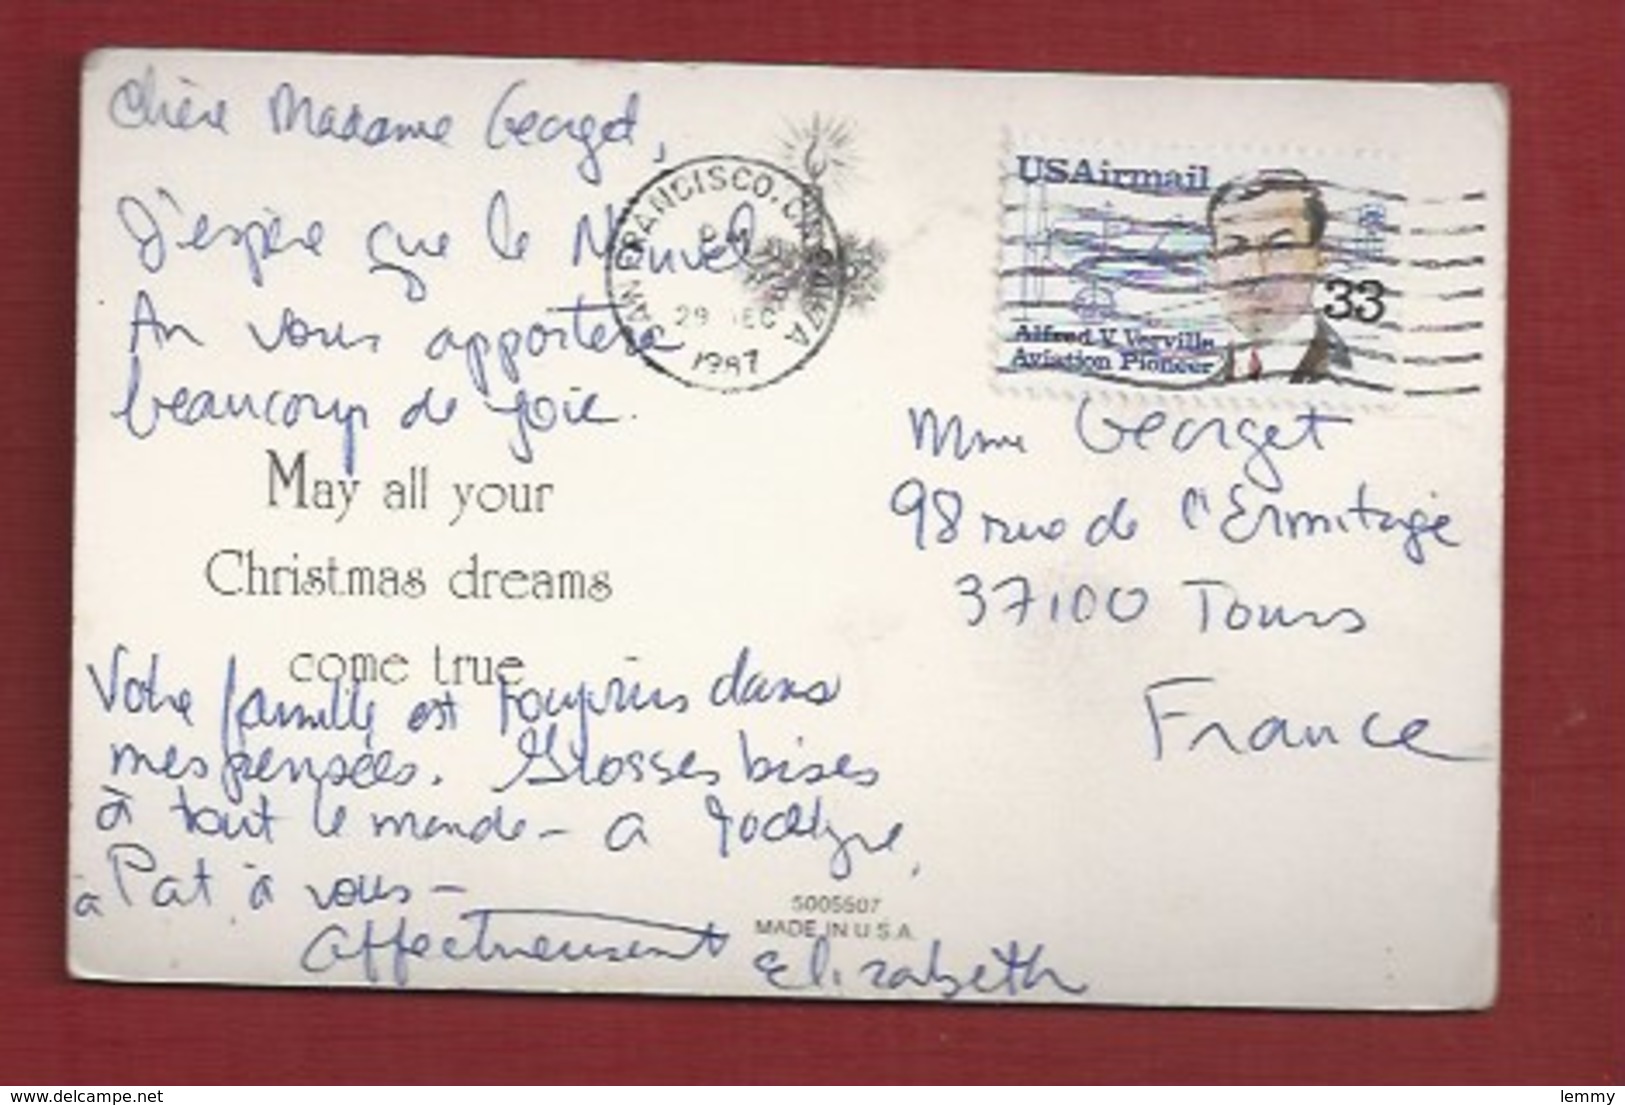 Chère Madame Georget,
J'espère que le Nouvel
An vous apportera
beaucoup de joie.
May all your
Christmas dreams
come true
Votre famille est toujours dans
mes pensées. Grosses bises
à tout le monde - à Jocelyne,
à Pat, à vous -
affectueusement Elizabeth
5005507
MADE IN U.S.A.
SAN FRANCISCO, CA
PM
29 DEC
1987
USAirmail
33
Alfred V. Verville
Aviation Pioneer
Mme Georget
98 rue de l'Ermitage
37100 Tours
France
delcampe.net
lemmy